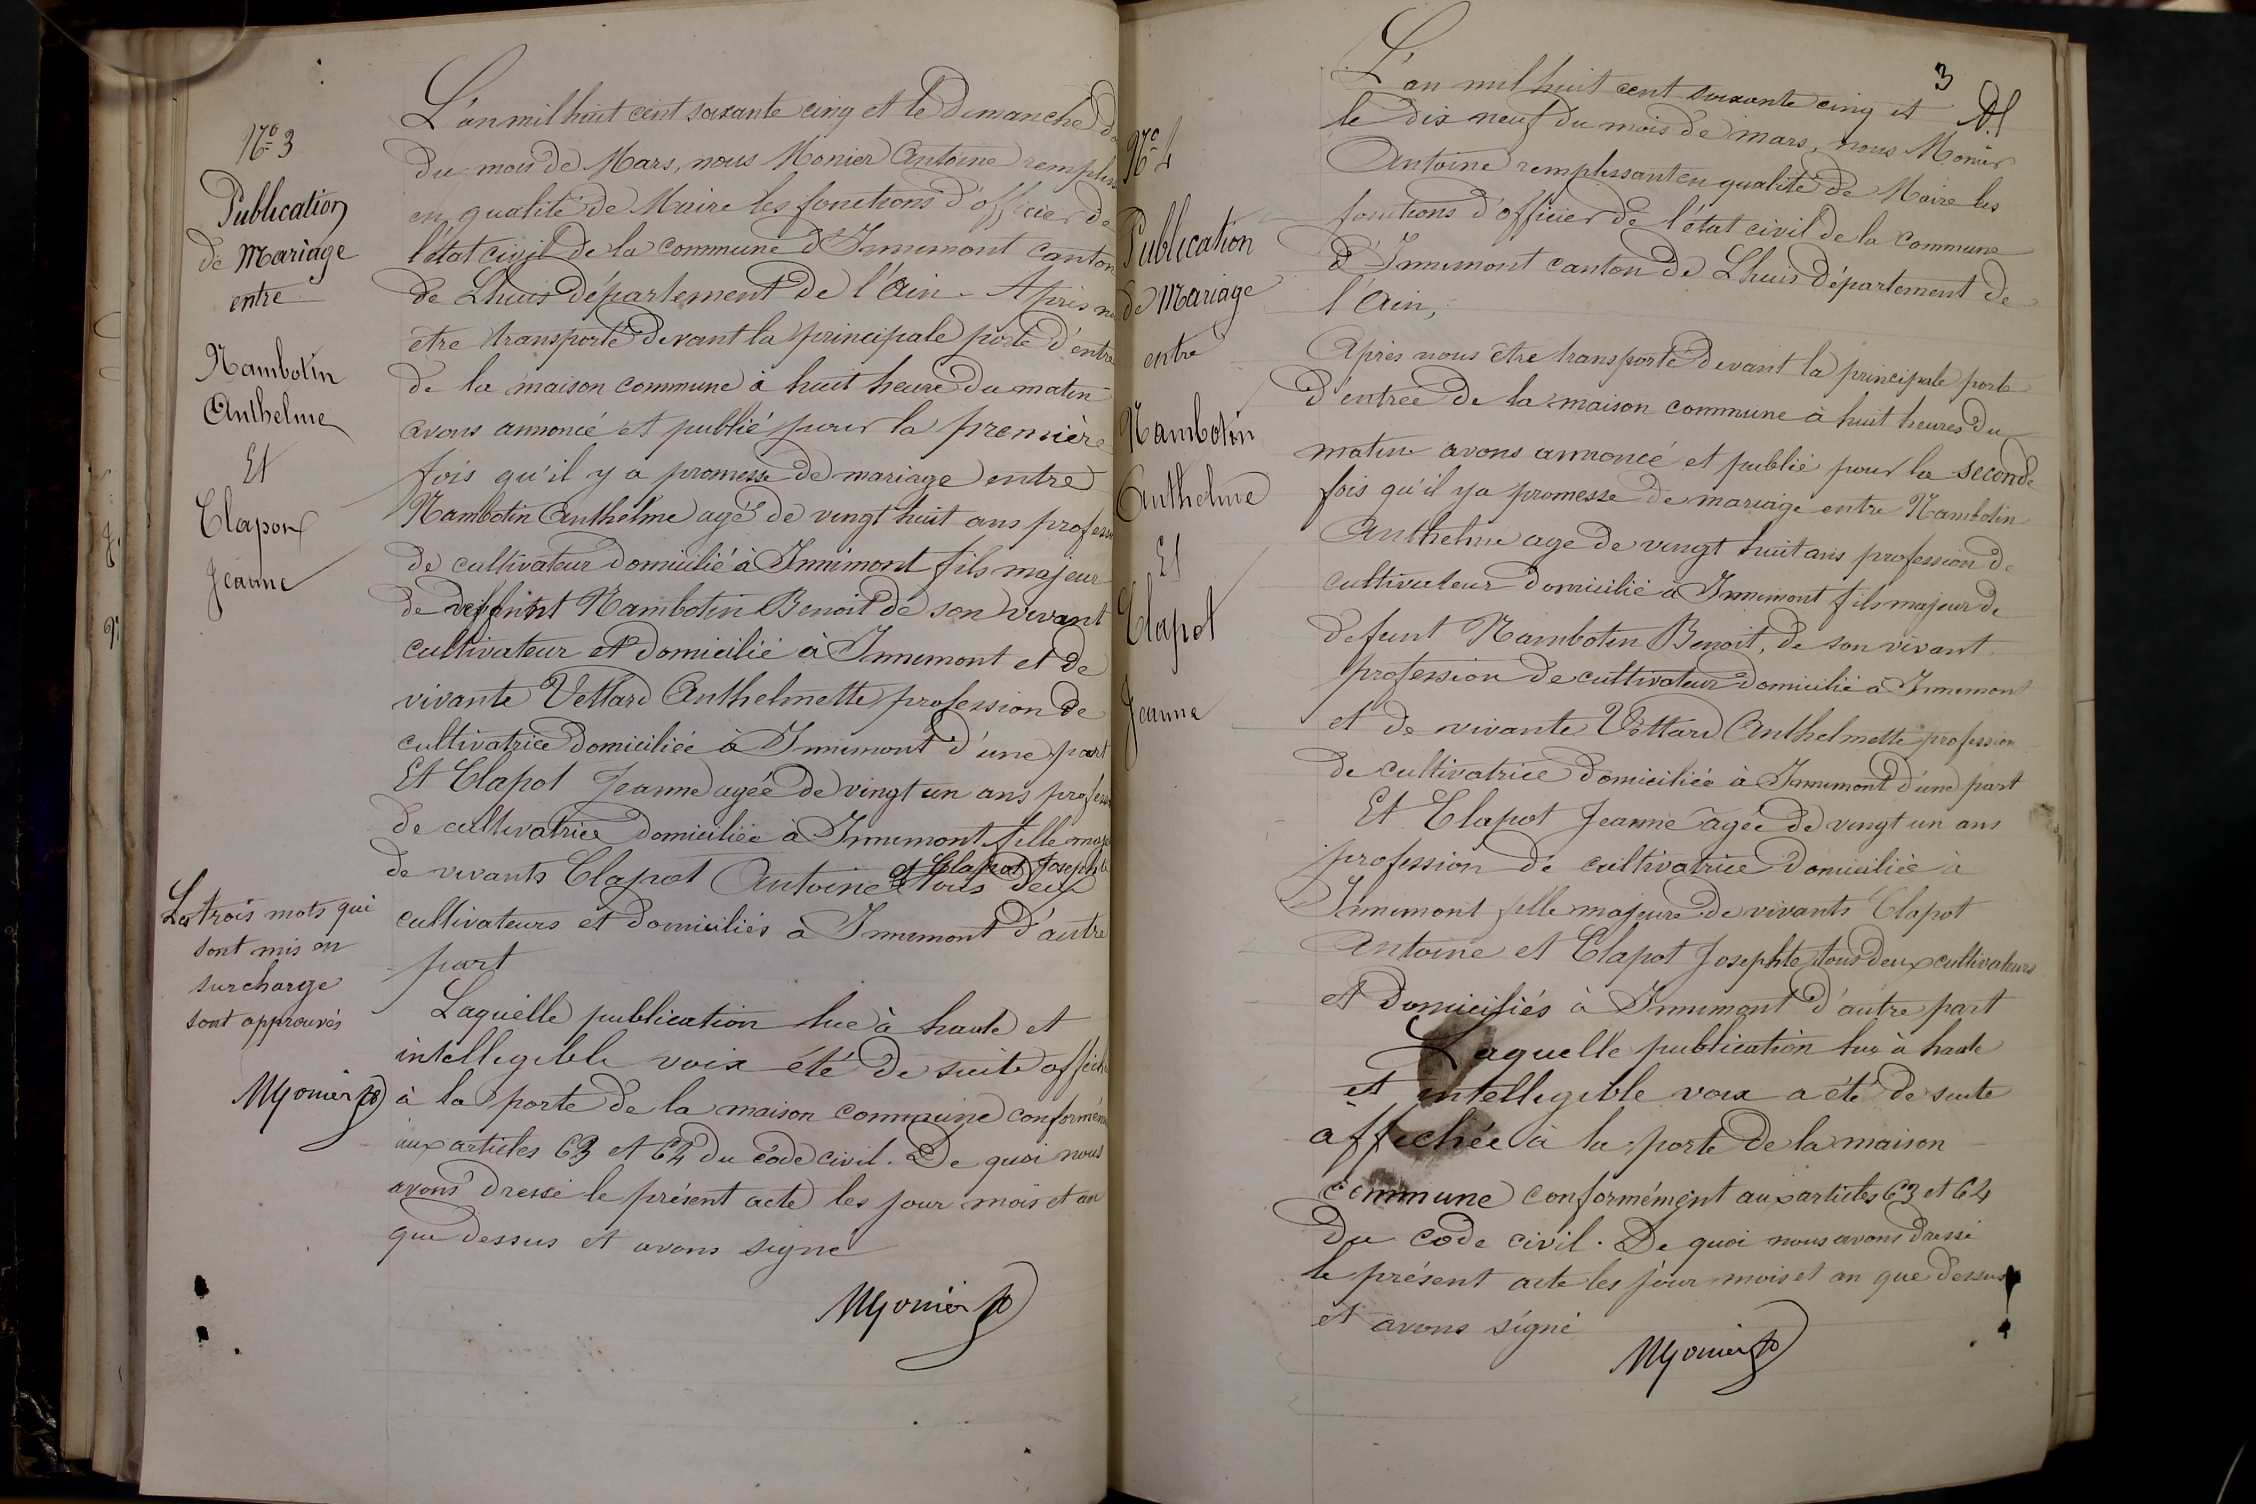 N° 3
Publication
de Mariage
entre
Nambotin
Anthelme
Et
Clapot
Jeanne
L'an mil huit cent soixante cinq et le dimanche
du mois de Mars, nous Monier Antoine remplis
en qualité de Maire les fonctions d'officier de
l'état civil de la commune d'Innimont canton
de Lhuis département de l'Ain. Après n
etre transporté devant la principale porte d'entré
de la maison commune à huit heure du matin
avons annoncé et publié pour la première
fois qu'il y a promesse de mariage entre
Nambotin Anthelme agé de vingt huit ans profess
de cultivateur domicilié à Innimont fils majeur
de deffunt Nambotin Benoit de son vivant
cultivateur et domicilié à Innimont et de
vivante Vettard Anthelmette profession de
cultivatrice domiciliée à Innimont d'une part
Et Clapot Jeanne agée de vingt un ans profess
de cultivatrice domiciliée à Innimont fille maj
et Clapot Josephte
de vivants Clapot Antoine tous deux
cultivateurs et domiciliés a Innimont d'autre
part
Laquelle publication lue à haute et
intellegible voix été de suite affich
à la porte de la maison commune conformém
aux articles 63 et 64 du code civil. De quoi nous
avons dressé le présent acte les jour mois et an
que dessus et avons signé
Monier
Les trois mots qui
sont mis en
surcharge
sont approuvés
Monier
3
N° 4
Publication
de Mariage
entre
Nambotin
Anthelme
Et
Clapot
Jeanne
L'an mil huit cent soixante cinq et
le dix neuf du mois de mars, nous Monier
Antoine remplissant en qualité de Maire les
fonctions d'officier de l'état civil de la commune
d'Innimont canton de Lhuis département de
l'Ain,
Après nous être transporté devant la principale porte
d'entrée de la maison commune à huit heures du
matin avons annoncé et publié pour la seconde
fois qu'il y a promesse de mariage entre Nambotin
Anthelme age de vingt huit ans profession de
cultivateur domicilié à Innimont fils majeur de
defunt Nambotin Benoit, de son vivant
profession de cultivateur domicilié à Innimont
et de vivante Vettard Anthelmette profession
de cultivatrice domiciliée à Innimont d'une part
Et Clapot Jeanne agée de vingt un ans
profession de cultivatrice domiciliée à
Innimont fille majeure de vivants Clapot
Antoine et Clapot Josephte tous deux cultivateurs
et domiciliés à Innimont d'autre part
Laquelle publication lue à haute
et intellegible voix a été de suite
affichée à la porte de la maison
commune conformément aux articles 63 et 64
du code civil. De quoi nous avons dressé
le présent acte les jour mois et an que dessus
et avons signé
Monier